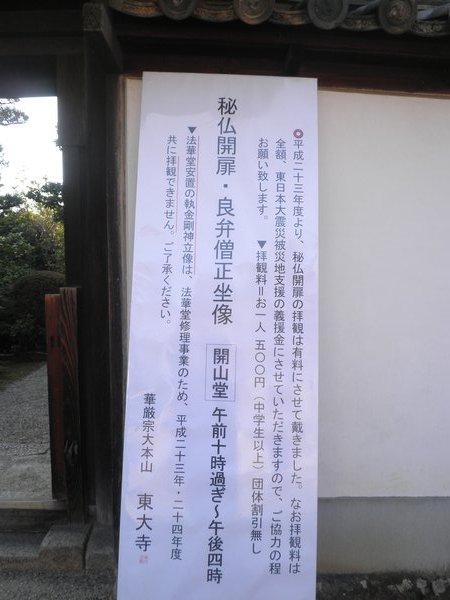 ◎平成二十三年度より、秘仏開扉の拝観は有料にさせて戴きました。なお拝観料は
全額、東日本大震災被災地支援の義援金にさせていただきますので、ご協力の程
お願い致します。 ▼拝観料＝お一人 五〇〇円（中学生以上）団体割引無し
秘仏開扉・良弁僧正坐像 開山堂 午前十時過ぎ～午後四時
▼法華堂安置の執金剛神立像は、法華堂修理事業のため、平成二十三年・二十四年度
共に拝観できません。ご了承ください。
華厳宗大本山 東大寺